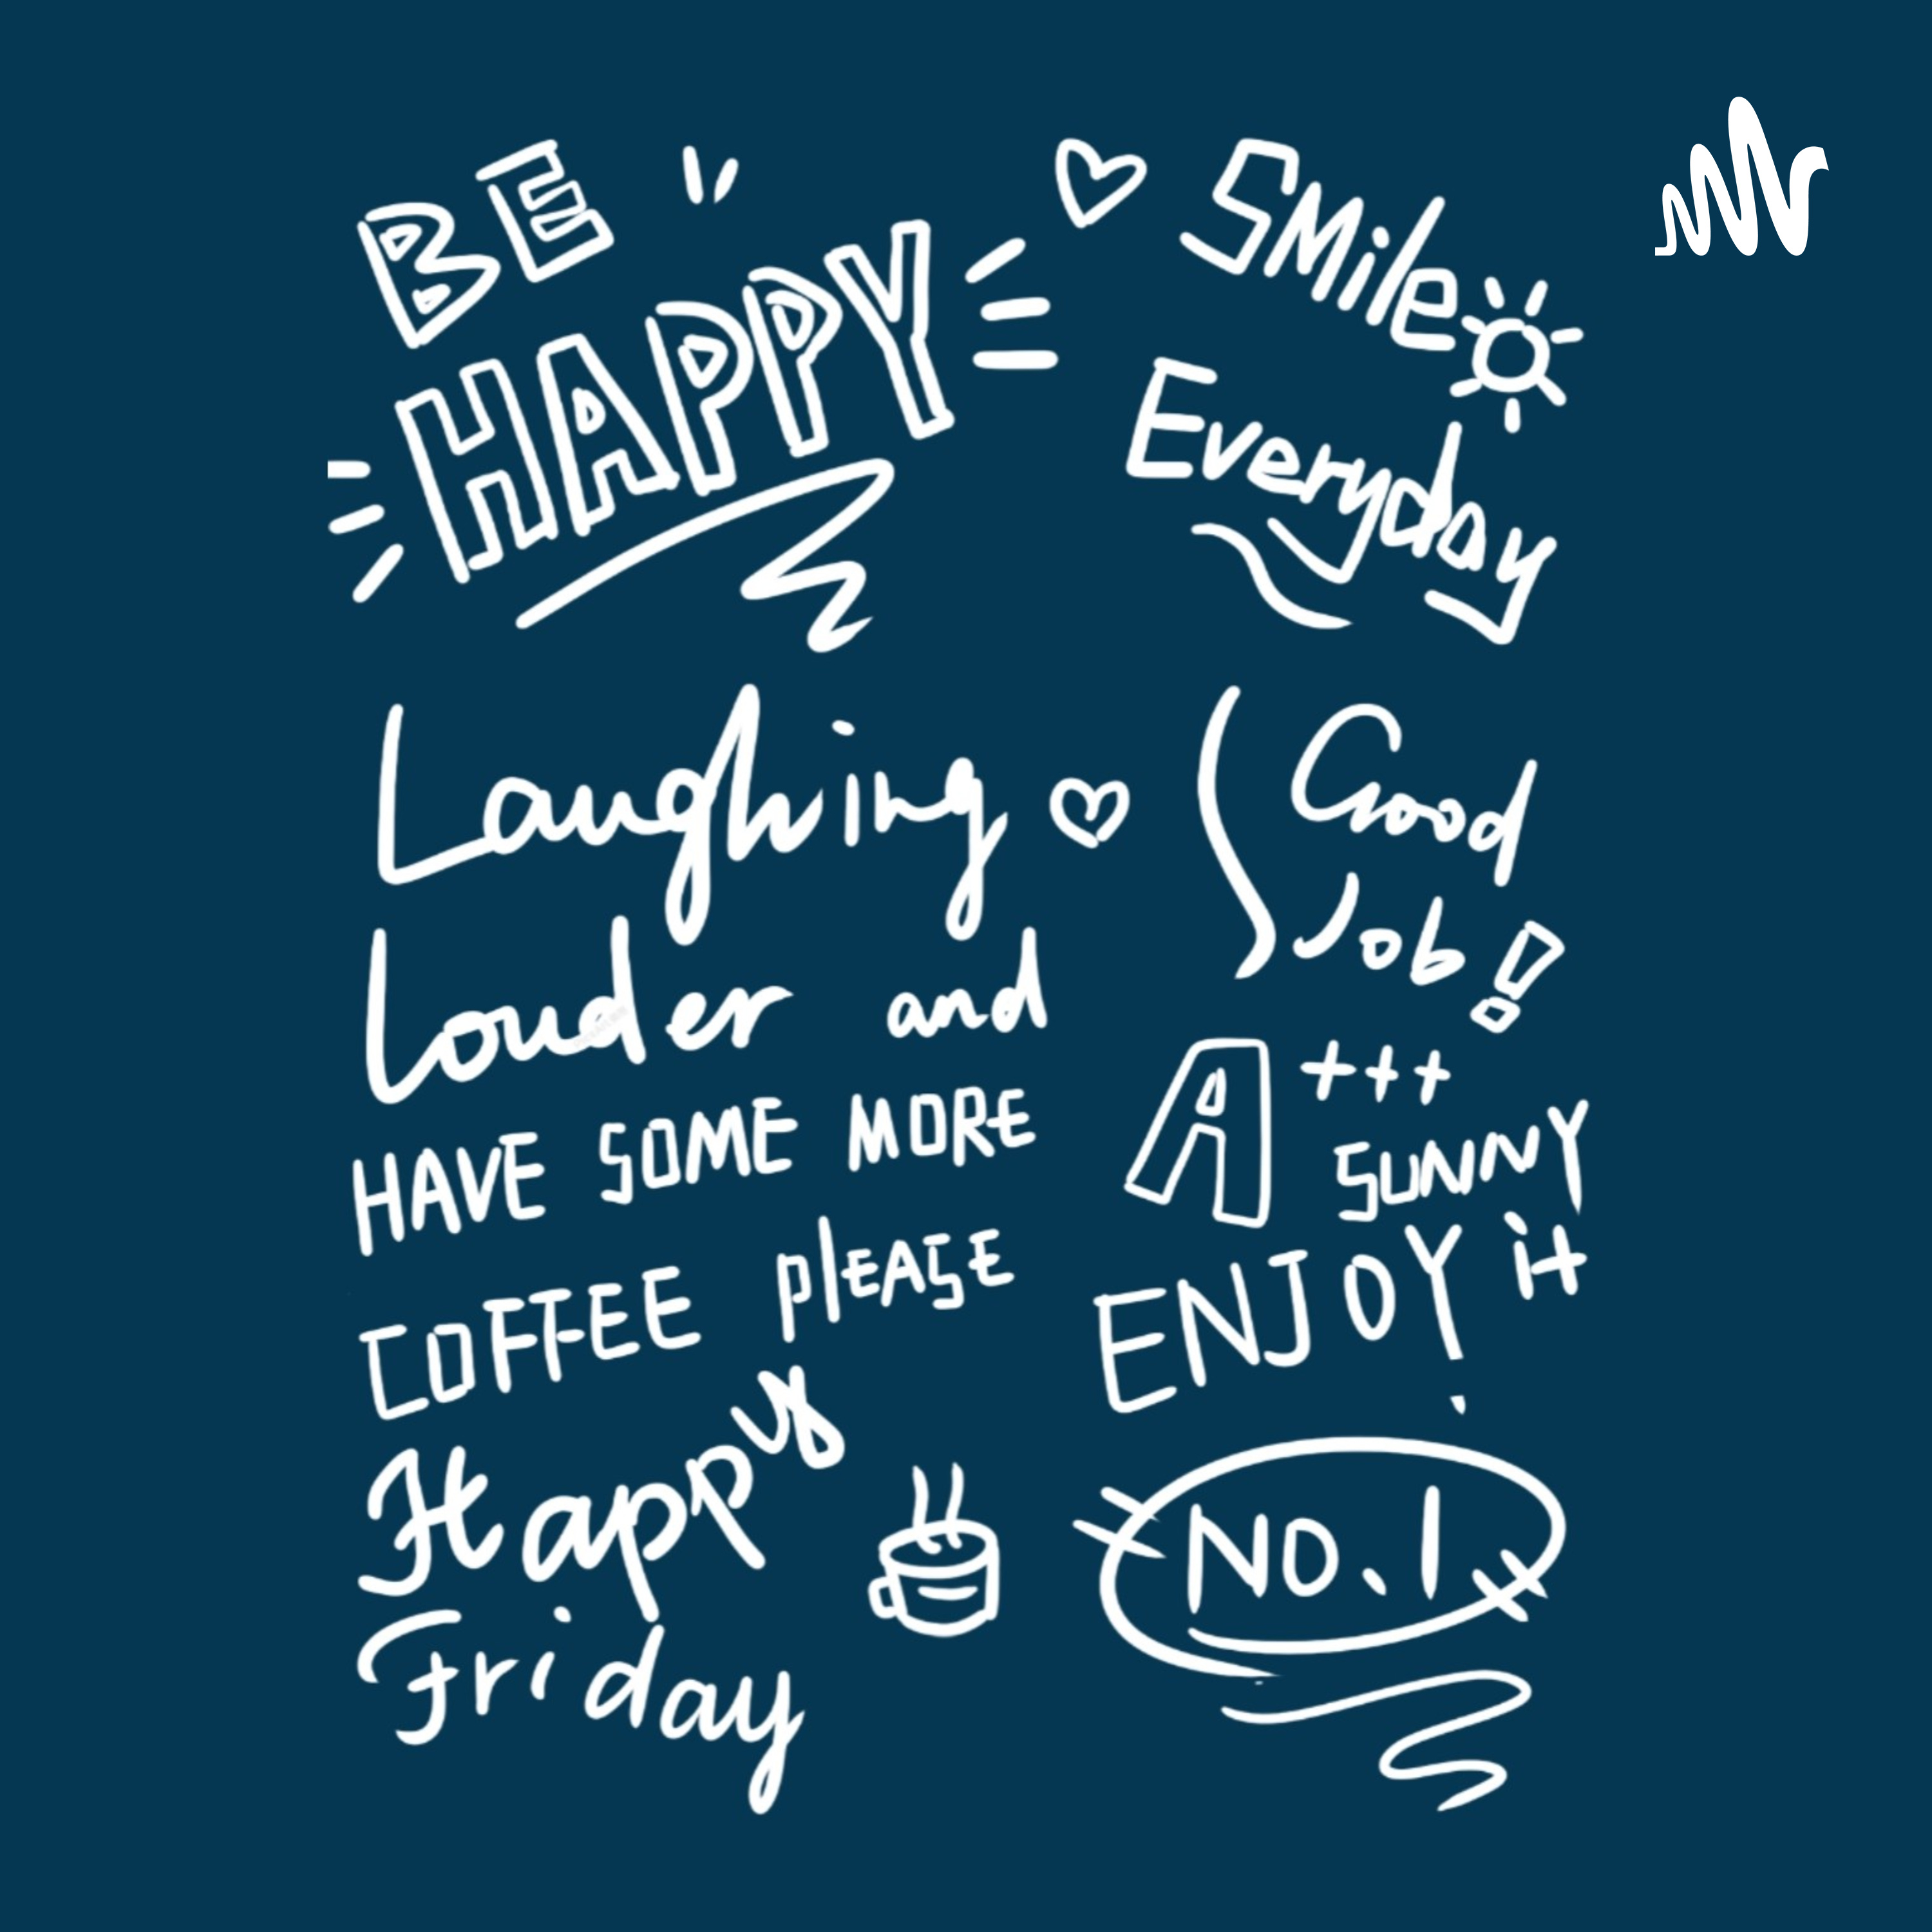 BE
HAPPY
SMile
Everyday
Laughing
Louder and
HAVE SOME MORE
COFFEE PlEASE
Happy
Friday
Good
Job!
A+++
SUNNY
ENJOY it
NO.1